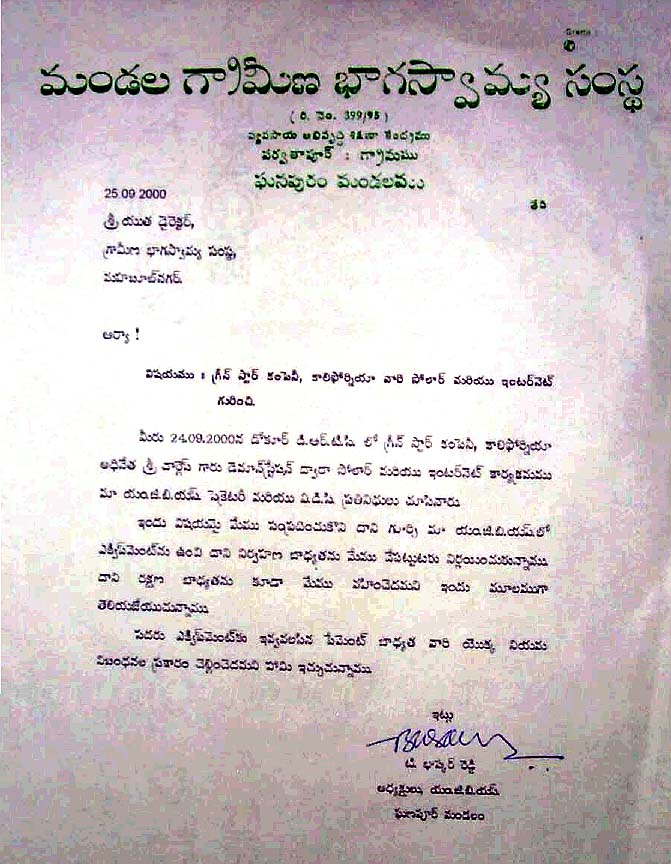 మండల గ్రామీణ భాగస్వామ్య సంస్థ
( రి. నెం. 399/95 )
వ్యవసాయ అభివృద్ధి శిక్షణా కేంద్రము
పర్వతాపూర్ : గ్రామము
ఘనపురం మండలము
25.09 2000
తేది
శ్రీ యుత డైరెక్టర్,
గ్రామీణ భాగస్వామ్య సంస్థ,
మహబూబ్‌నగర్.
ఆర్యా !
విషయము : గ్రీన్ స్టార్ కంపెనీ, కాలిఫోర్నియా వారి సోలార్ మరియు ఇంటర్‌నెట్
గురించి.
మీరు 24.09.2000న దోకూర్ డి.ఆర్.టి.సి. లో గ్రీన్ స్టార్ కంపెనీ, కాలిఫోర్నియా
అధినేత శ్రీ నార్త్రెప్ గారు డెమాన్‌స్ట్రేషన్ ద్వారా సోలార్ మరియు ఇంటర్‌నెట్ కార్యక్రమము
మా యం.జి.బి.యస్. సెక్రెటరీ మరియు ఏ.డి.సి. ప్రతినిధులు చూసినారు.
ఇందు విషయమై మేము సంప్రదించుకొని దాని గూర్చి మా యం.జి.బి.యస్.లో
ఎక్విప్‌మెంట్‌ను ఉంచి దాని నిర్వహణ బాధ్యతను మేము చేపట్టుటకు నిర్ణయించుకున్నాము.
దాని రక్షణ బాధ్యతను కూడా మేము వహించెదమని ఇందు మూలముగా
తెలియజేయుచున్నాము.
సదరు ఎక్విప్‌మెంట్‌కు ఇవ్వవలసిన పేమెంట్ బాధ్యత వారి యొక్క నియమ
నిబంధనల ప్రకారం చెల్లించెదమని హామీ ఇచ్చుచున్నాము.
ఇట్లు
టి. భాస్కర్ రెడ్డి
అధ్యక్షులు, యం.జి.బి.యస్.
ఘణపూర్ మండలం